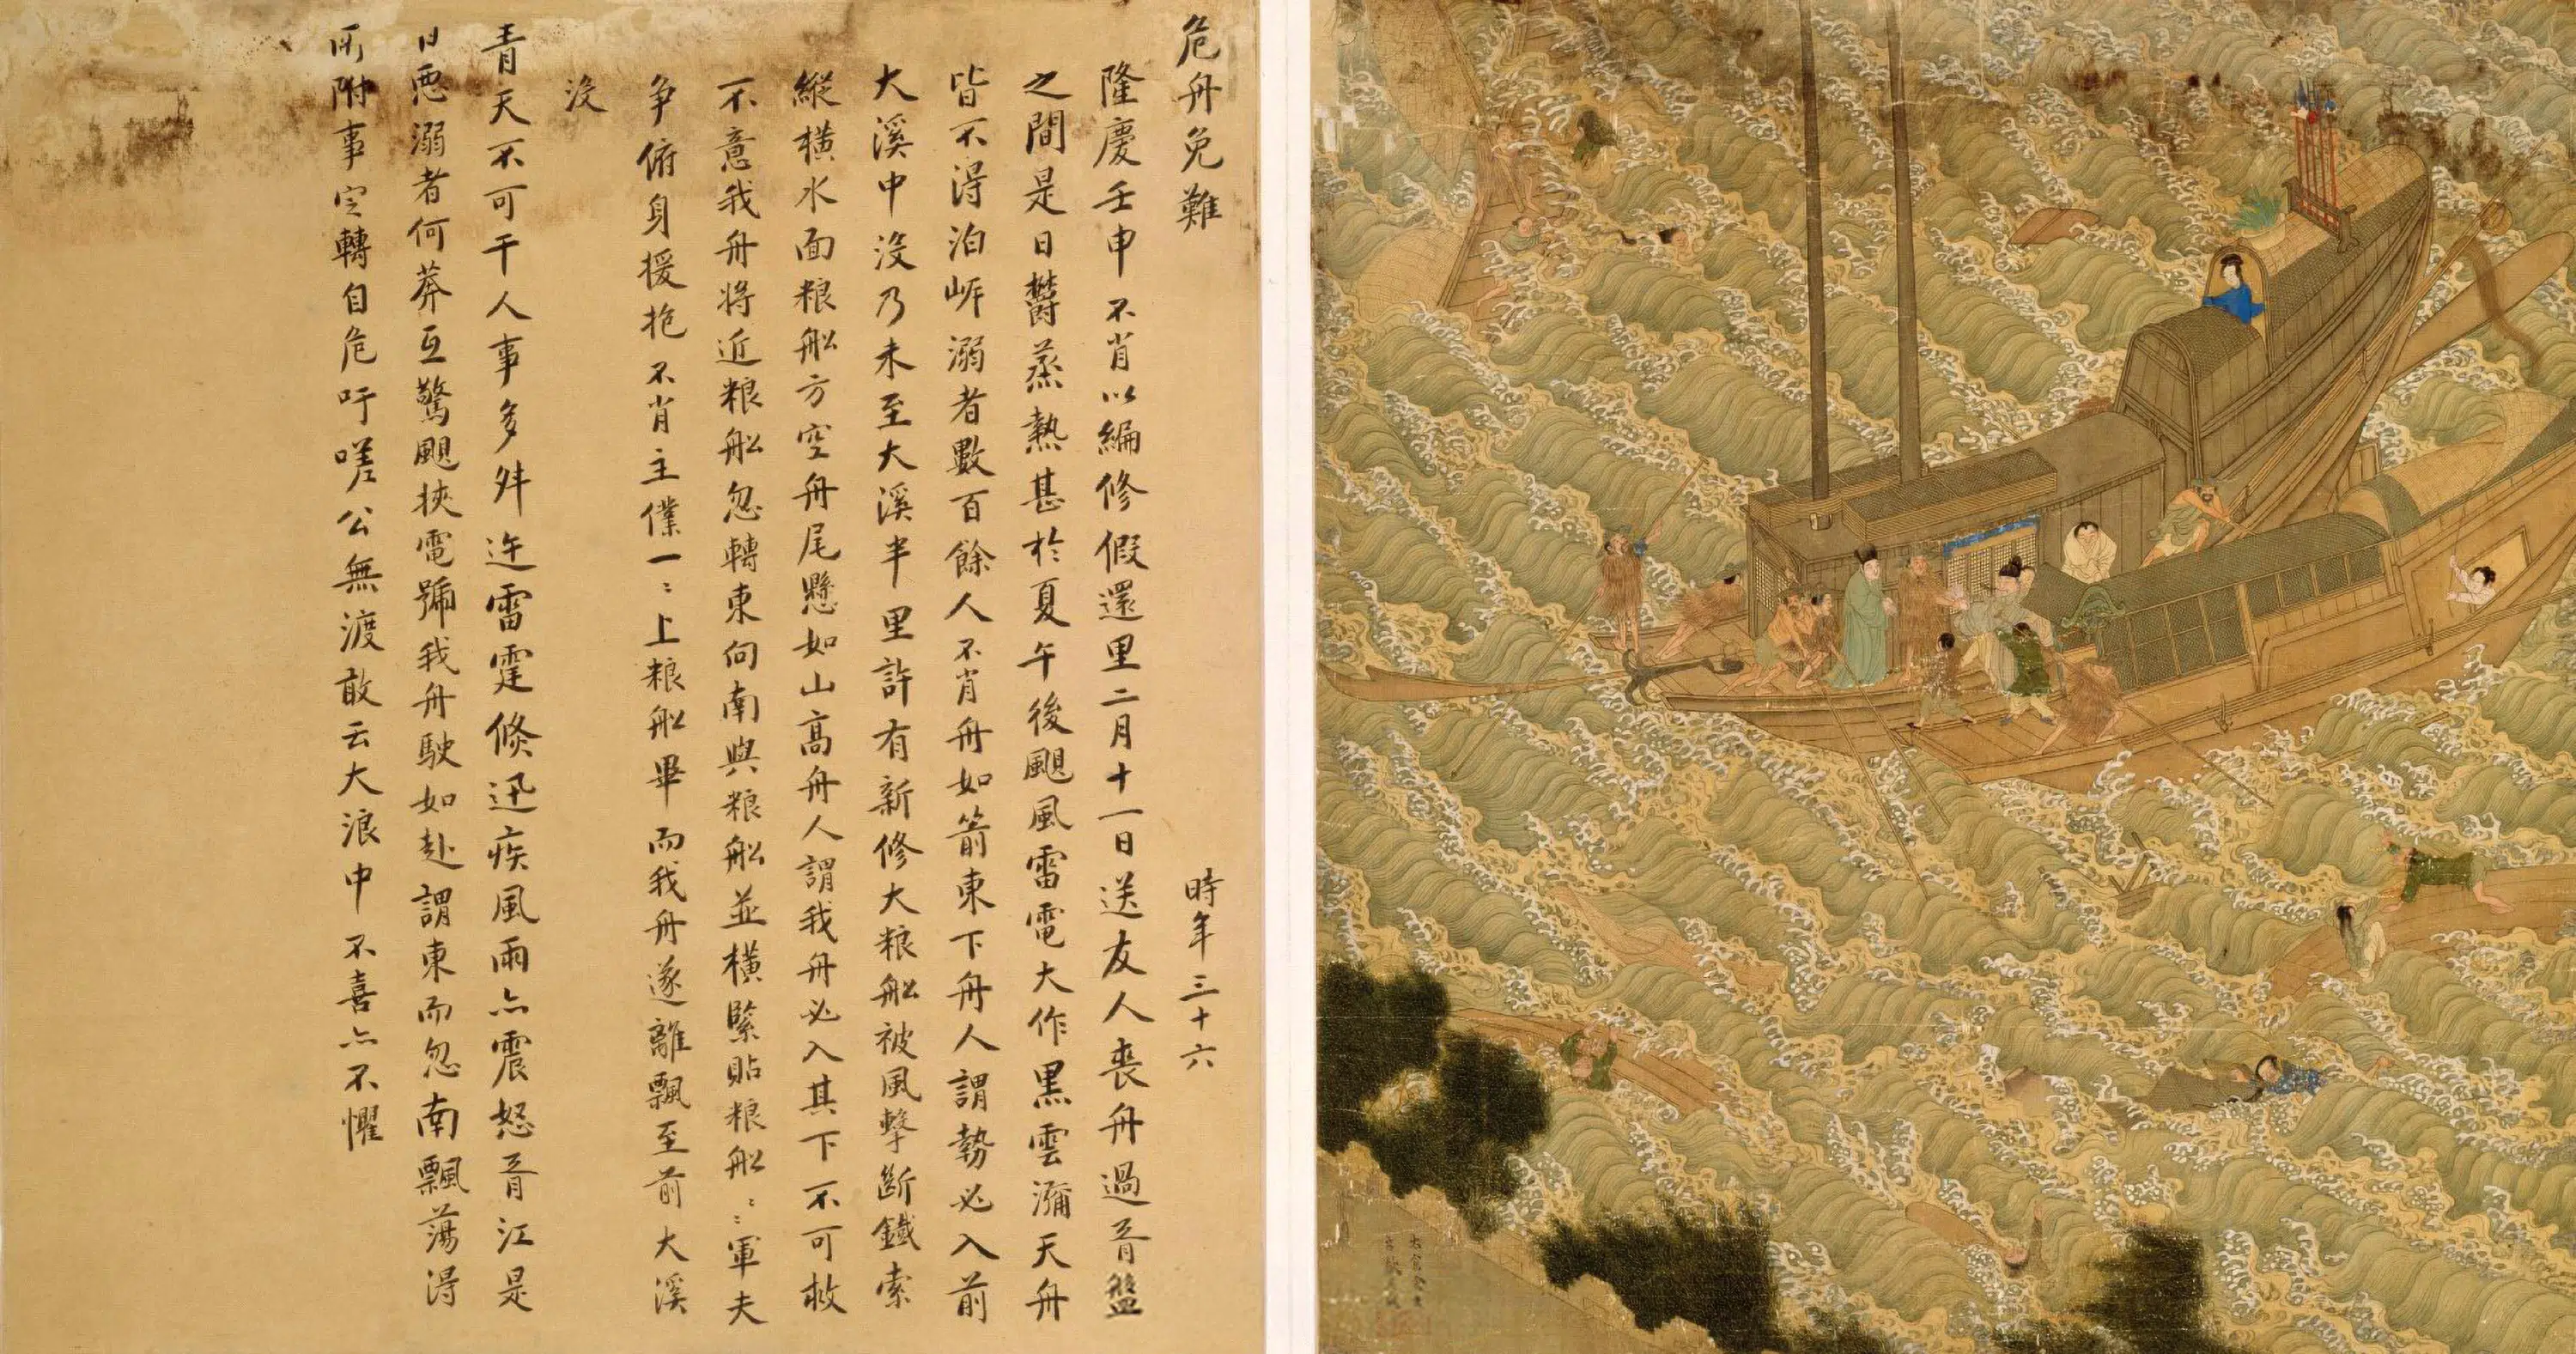 危舟免難 時年三十六
隆慶壬申不肖以編修假還里二月十一日送友人喪舟過胥盤
之間是日鬱蒸熱甚於夏午後颶風雷電大作黑雲瀰天舟
皆不得泊岸溺者數百餘人不肖舟如箭東下舟人謂勢必入前
大溪中沒乃未至大溪半里許有新修大粮船被風擊斷鐵索
縱橫水面粮船方空舟尾懸如山高舟人謂我舟必入其下不可救
不意我舟將近粮船忽轉東向南與粮船並橫緊貼粮船〻〻軍夫
争俯身援抱不肖主僕一〻上粮船畢而我舟遂離飄至前大溪
沒
青天不可干人事多舛迕雷霆倏迅疾風雨亦震怒胥江是
日惡溺者何莽互驚颶挾電號我舟駛如赴謂東而忽南飄蕩得
所附事定轉自危吁嗟公無渡敢云大浪中不喜亦不懼